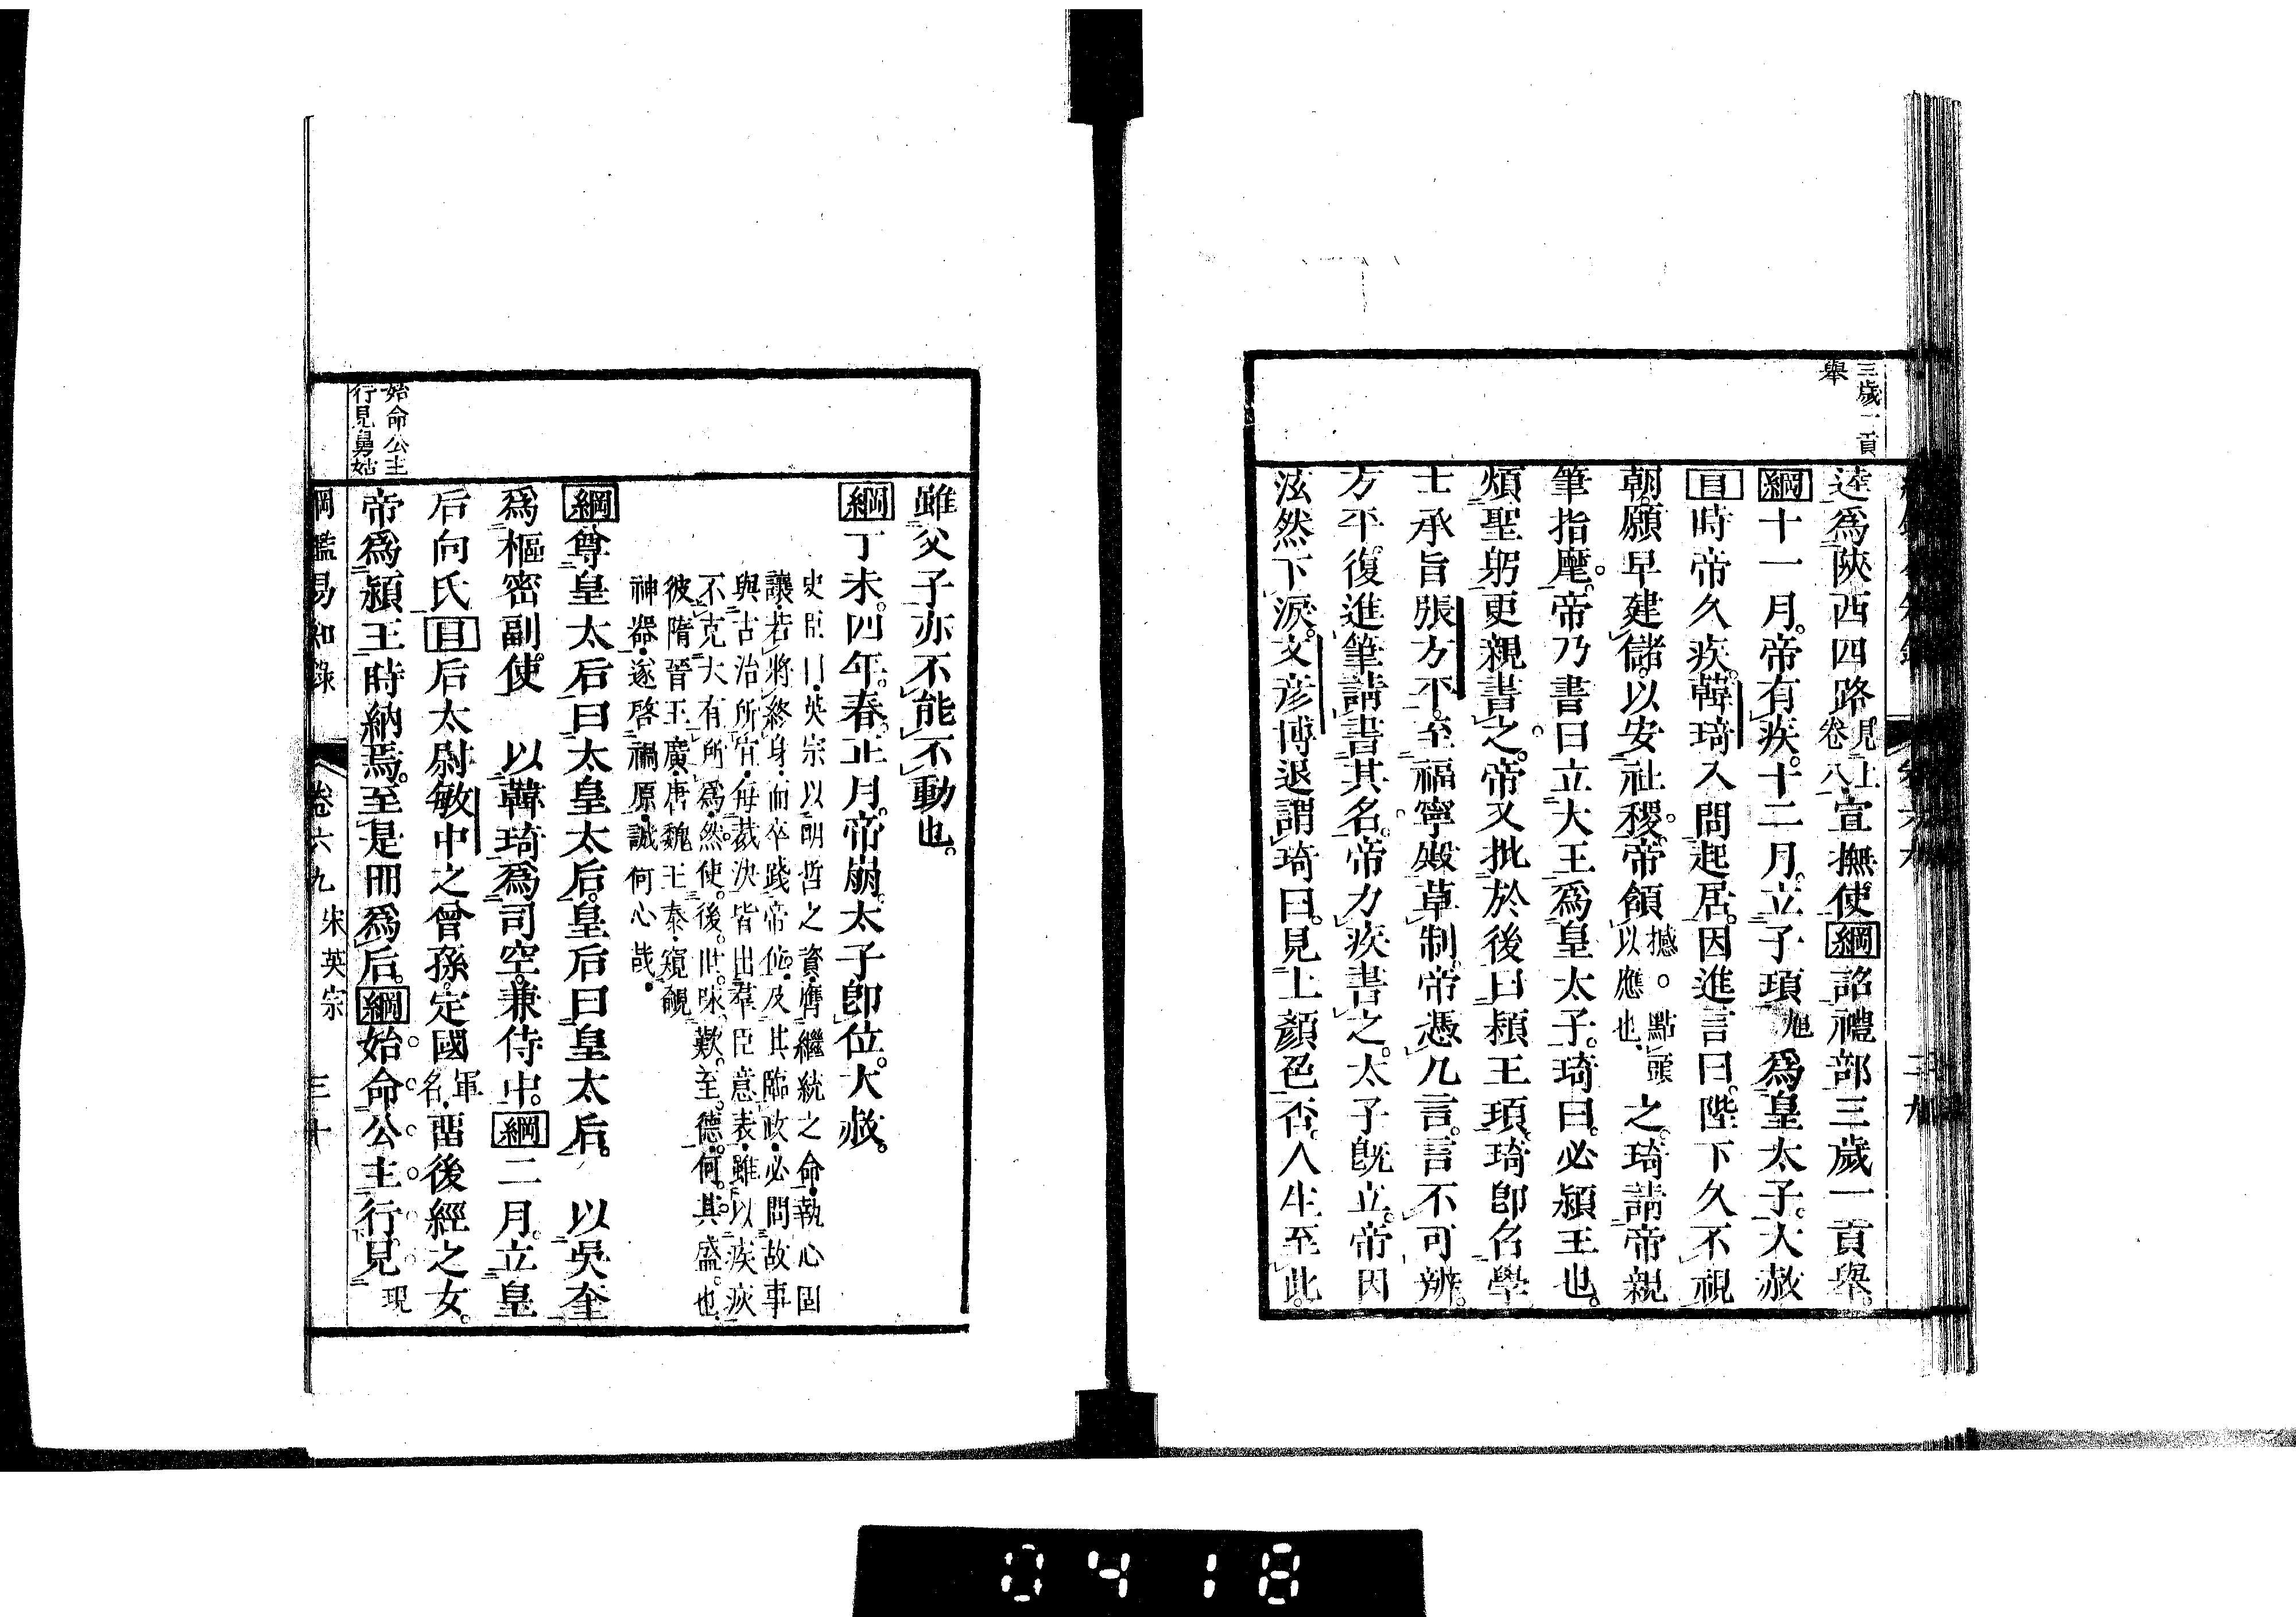 三歲一貢
舉
逵爲陝西四路見上卷八宣撫使綱詔禮部三歲一貢舉。
綱十一月。帝有疾。十二月。立子頊旭爲皇太子。大赦
目時帝久疾。韓琦入問起居。因進言曰。陛下久不視
朝。願早建儲。以安社稷。帝頷撼。點頭以應也。之。琦請帝親
筆指麾。帝乃書曰立大王爲皇太子。琦曰。必潁王也。
煩聖躬更親書之。帝又批於後曰潁王頊。琦卽名學
士承旨張方平。至福寧殿草制。帝憑几言。言不可辨。
方平復進筆請書其名。帝力疾書之。太子旣立。帝因
泫然下淚。文彦博退謂琦曰。見上顏色否。人生至此。
雖父子亦不能不動也。
綱丁未。四年。春。正月。帝崩。太子卽位。大赦。
史臣曰、英宗以明哲之資、膺繼統之命、執心固
讓、若將終身、而卒踐帝位、及其臨政、必問故事
與古治所宜、每裁決皆出羣臣意表、雖以疾疢
不克大有所爲、然使。後。世。咏。歎。至。德。何。其。盛。也、
彼隋晉王廣、唐魏王泰、窺覦
神器、遂啓禍原、誠何心哉、
綱尊皇太后曰太皇太后。皇后曰皇太后。 以吳奎
爲樞密副使 以韓琦爲司空。兼侍中。綱二月。立皇
后向氏目后太尉敏中之曾孫。定國軍名、畱後經之女。
帝爲潁王時納焉。至是冊爲后。綱始命公主行見現
始命公主
行見舅姑
綱鑑易知錄 卷六九 宋英宗 三十